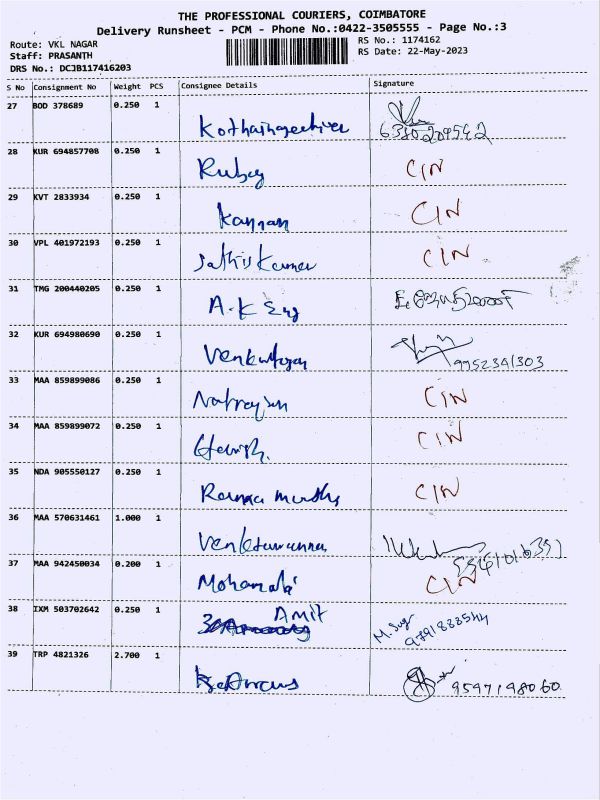 THE PROFESSIONAL COURIERS, COIMBATORE
Delivery Runsheet - PCM - Phone No.:0422-3505555 - Page No.:3
Route: VKL NAGAR
Staff: PRASANTH
DRS No.: DCJB117416203
RS No.: 1174162
RS Date: 22-May-2023
S No Consignment No Weight PCS Consignee Details Signature
27 BOD 378689 0.250 1
28 KUR 694857708 0.250 1 Rubay CIN
29 KVT 2833934 0.250 1 Kannan CIN
30 VPL 401972193 0.250 1 Sathis Kumar CIN
31 TMG 200440205 0.250 1 A.K Eng
32 KUR 694980690 0.250 1 9952341303
33 MAA 859899086 0.250 1 Natrajan CIN
34 MAA 859899072 0.250 1 Harish. CIN
35 NDA 905550127 0.250 1 Rama murthy CIN
36 MAA 570631461 1.000 1
37 MAA 942450034 0.200 1 CIN
38 IXM 503702642 0.250 1 Amit
39 TRP 4821326 2.700 1 9597198060